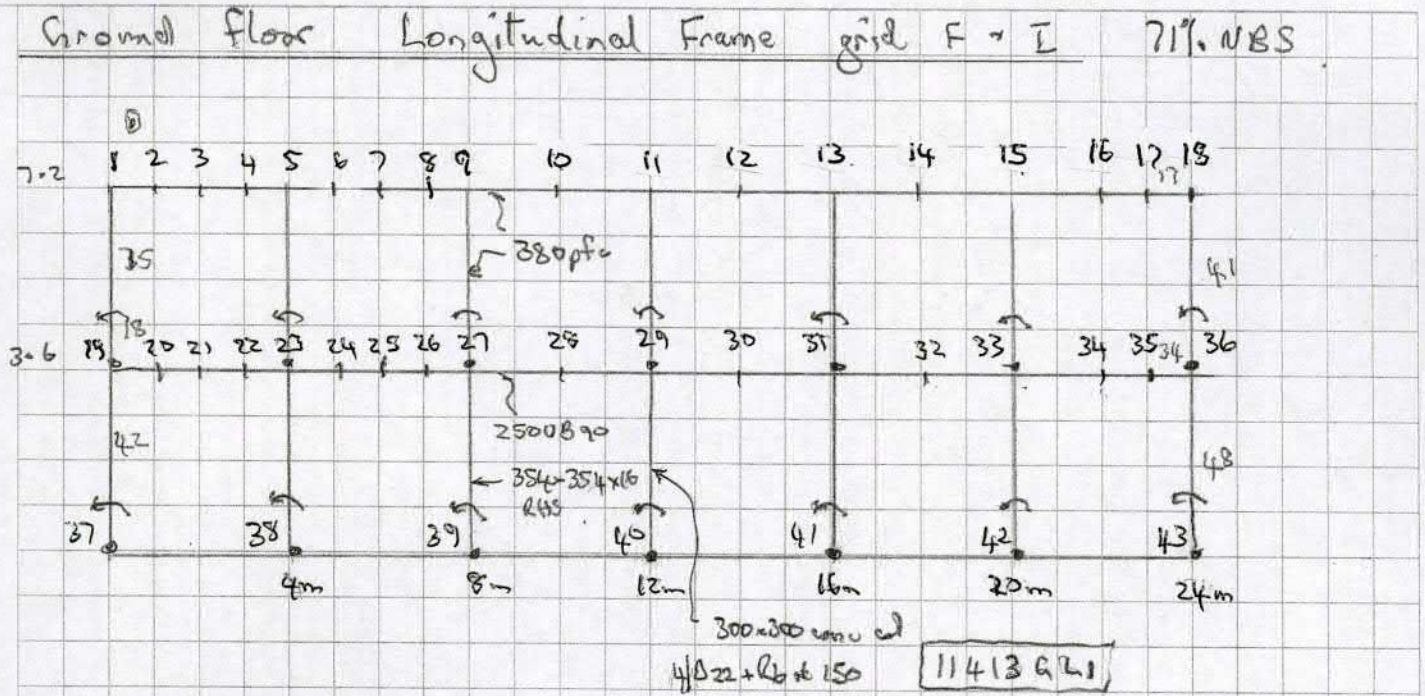 Ground floor Longitudinal Frame grid F - I 71% NBS
7.2
1 2 3 4 5 6 7 8 9 10 11 12 13 14 15 16 17 18
17
380 pfc
35
41
18
3.6
19 20 21 22 23 24 25 26 27 28 29 30 31 32 33 34 35 34 36
250UB90
42
354x354x16
RHS
48
37 38 39 40 41 42 43
4m 8m 12m 16m 20m 24m
300x300 conc col
4/D22 + R6 at 150
11413GL1